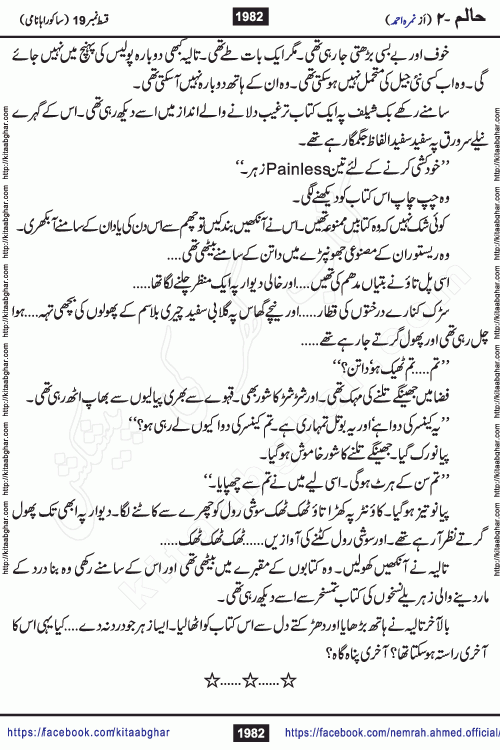 حالم -۲ (از نمرہ احمد)
1982
قسط نمبر 19 (ساکورا ہانامی)
خوف اور بے بسی بڑھتی جا رہی تھی۔ مگر ایک بات طے تھی۔ تالیہ کبھی دوبارہ پولیس کی پہنچ میں نہیں جائے
گی۔ وہ اب کسی نئی جیل کی متحمل نہیں ہو سکتی تھی۔ وہ ان کے ہاتھ دوبارہ نہیں آ سکتی تھی۔
سامنے رکھے بک شیلف پہ ایک کتاب ترغیب دلانے والے انداز میں اسے دیکھ رہی تھی۔ اس کے گہرے
نیلے سرورق پہ سفید سفید الفاظ جگمگا رہے تھے۔
’’خودکشی کرنے کے لئے تین Painless زہر۔‘‘
وہ چپ چاپ اس کتاب کو دیکھنے لگی۔
کوئی شک نہیں کہ وہ کتابیں ممنوعہ تھیں۔ اس نے آنکھیں بند کیں تو چھم سے اس دن کی یاد ان کے سامنے آ ابھری۔
وہ ریستوران کے مصنوعی جھونپڑے میں داتن کے سامنے بیٹھی تھی....
اسی پل تاؤ نے بتیاں مدھم کی تھیں.... اور خالی دیوار پہ ایک منظر چلنے لگا تھا.....
سڑک کنارے درختوں کی قطار..... اور نیچے گھاس پہ گلابی سفید چیری بلاسم کے پھولوں کی بچھی تہہ..... ہوا
چل رہی تھی اور پھول گرتے جا رہے تھے.....
’’تم.... تم ٹھیک ہو داتن؟‘‘
فضا میں جھینگے تلنے کی مہک تھی۔ اور شڑ شڑ کا شور بھی۔ قہوے سے بھری پیالیوں سے بھاپ اٹھ رہی تھی۔
’’یہ کینسر کی دوا ہے‘ اور یہ بوتل تمہاری ہے۔ تم کینسر کی دوا کیوں لے رہی ہو؟‘‘
پیانو رک گیا۔ جھینگے تلنے کا شور خاموش ہو گیا۔
’’تم سن کے ہرٹ ہو گی۔ اسی لیے میں نے تم سے چھپایا۔‘‘
پیانو تیز ہو گیا۔ کاؤنٹر پہ کھڑا تاؤ ٹھک ٹھک سوشی رول کو چھرے سے کاٹنے لگا۔ دیوار پہ ابھی تک پھول
گرتے نظر آ رہے تھے۔ اور سوشی رول کٹنے کی آوازیں...... ٹھک ٹھک ٹھک.....
تالیہ نے آنکھیں کھولیں۔ وہ کتابوں کے مقبرے میں بیٹھی تھی اور اس کے سامنے رکھی وہ بنا درد کے
مار دینے والی زہریلے نسخوں کی کتاب تمسخر سے اسے دیکھ رہی تھی۔
بالآخر تالیہ نے ہاتھ بڑھایا اور دھڑکتے دل سے اس کتاب کو اٹھا لیا۔ ایسا زہر جو درد نہ دے.... کیا یہی اس کا
آخری راستہ ہو سکتا تھا؟ آخری پناہ گاہ؟
☆......☆......☆
https://facebook.com/kitaabghar
1982
https://facebook.com/nemrah.ahmed.official/
http://kitaabghar.com